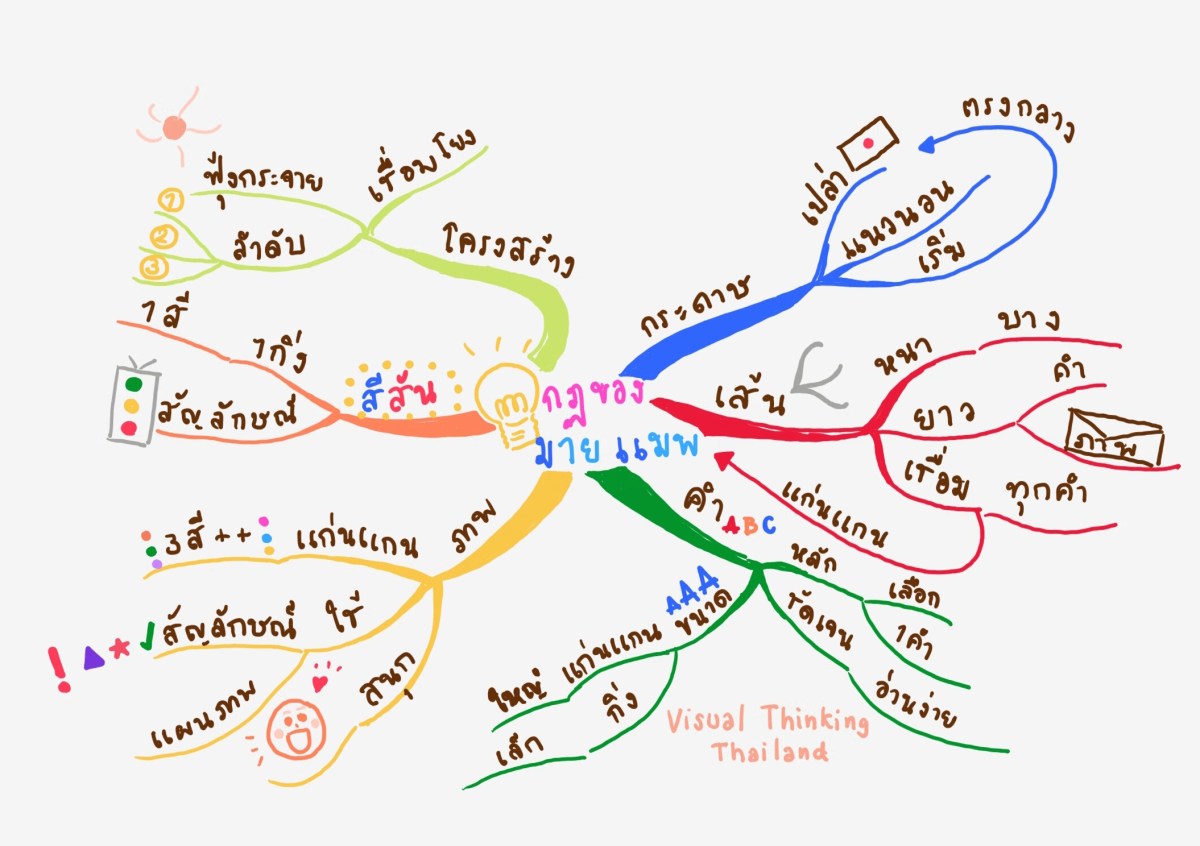 กฎของ
มายแมพ
กระดาษ
เปล่า
แนวนอน
เริ่ม
ตรงกลาง
เส้น
หนา
บาง
ยาว
คำ
ภาพ
เชื่อม
ทุกคำ
แก่นแกน
คำ
ABC
หลัก
เลือก
1คำ
ชัดเจน
อ่านง่าย
AAA
ขนาด
แก่นแกน
ใหญ่
กิ่ง
เล็ก
ภาพ
แก่นแกน
3สี++
ใช้
สัญลักษณ์
แผนภาพ
สนุก
สีสัน
1กิ่ง
1สี
สัญลักษณ์
โครงสร้าง
เชื่อมโยง
ฟุ้งกระจาย
ลำดับ
1
2
3
Visual Thinking
Thailand